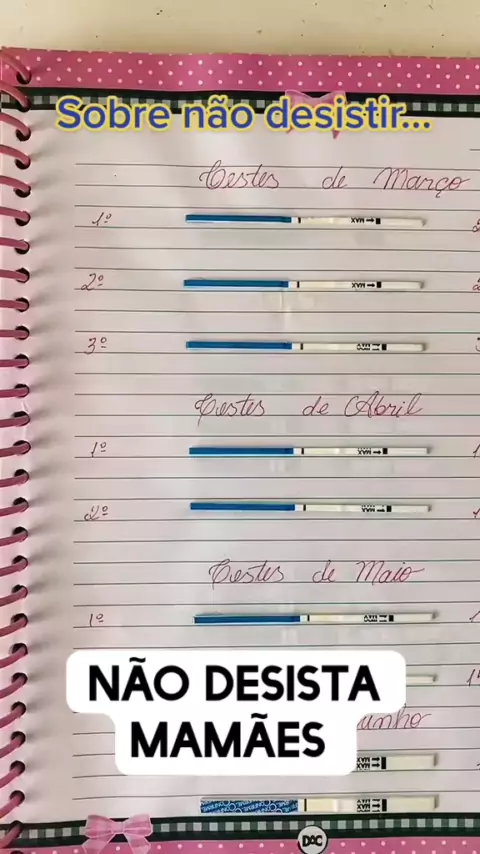 Sobre não desistir...
Testes de Março
1º
2º
3º
Testes de Abril
1º
2º
Testes de Maio
1º
NÃO DESISTA
MAMÃES
unho
MAX
MAX
MAX
MAX
MAX
MAX
DAC